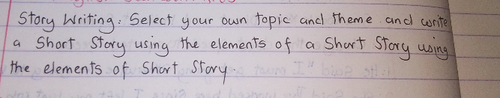 Story Writing: Select your own topic and theme and write
a Short Story using the elements of a Short Story using
the elements of Short Story.